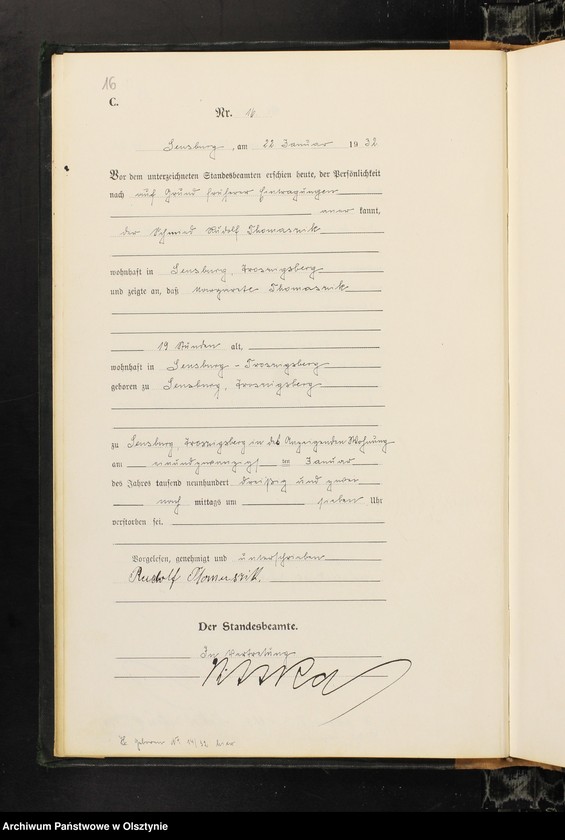 16
C.
Nr. 16
Sensburg, am 22 Januar 1932
Vor dem unterzeichneten Standesbeamten erschien heute, der Persönlichkeit
nach auf Grund früherer Eintragungen
aner kannt,
der Schmied Rudolf Thomaszik
wohnhaft in Sensburg,
und zeigte an, daß Margarete Thomaszik
19 Stunden alt,
wohnhaft in Sensburg -
geboren zu Sensburg,
zu Sensburg, in des Anzeigenden Wohnung
am einundzwanzigsten Januar
des Jahres tausend neunhundert dreißig und zwei
nach mittags um sieben Uhr
verstorben sei.
Vorgelesen, genehmigt und unterschrieben
Rudolf Thomaszik.
Der Standesbeamte.
In Vertretung
Archiwum Państwowe w Olsztynie